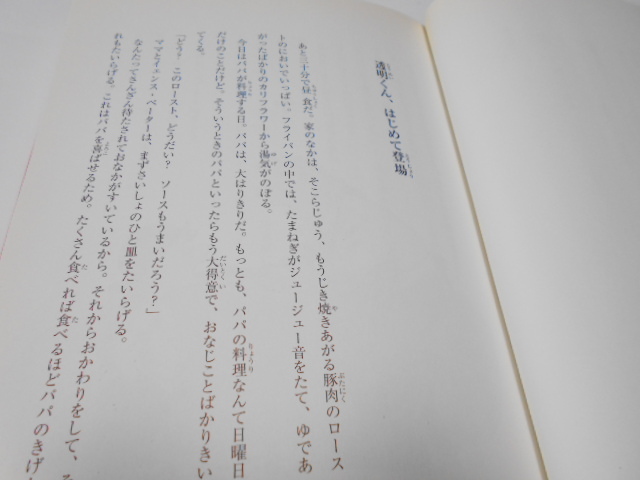 透明くん、はじめて登場
あと三十分で昼食だ。家のなかは、そこらじゅう、もうじき焼きあがる豚肉のロース
トのにおいでいっぱい。フライパンの中では、たまねぎがジュージュー音をたて、ゆであ
がったばかりのカリフラワーから湯気がのぼる。
今日はパパが料理する日。パパは、大はりきりだ。もっとも、パパの料理なんて日曜日
だけのことだけど。そういうときのパパといったらもう大得意で、おなじことばかりきい
てくる。
「どう?このロースト、どうだい?ソースもうまいだろう?」
ママとイェンス・ペーターは、まずさいしょのひと皿をたいらげる。
なんたってさんざん待たされておなかがすいているから。それからおかわりをして、
れもたいらげる。これはパパを喜ばせるため。たくさん食べれば食べるほどパパのきげ